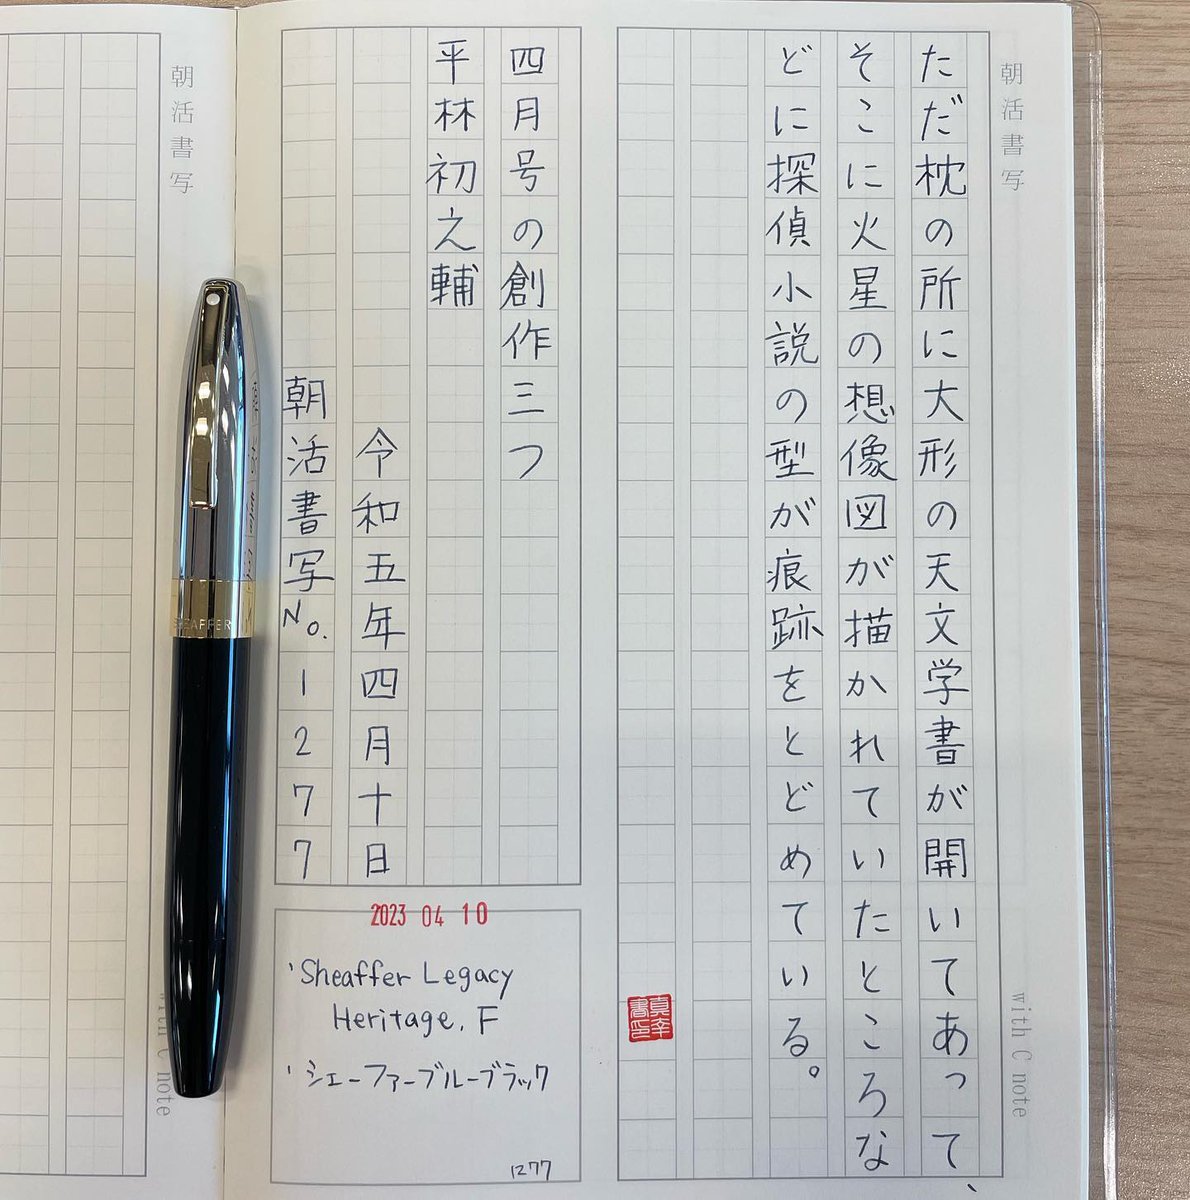 朝活書写
ただ枕の所に大形の天文学書が開いてあって、
そこに火星の想像図が描かれていたところな
どに探偵小説の型が痕跡をとどめている。
with C note
四月号の創作三つ
平林初之輔
令和五年四月十日
朝活書写No.1277
2023 04 10
'Sheaffer Legacy
Heritage, F
'シェーファーブルーブラック
1277
朝活書写
with C note
SHEAFFER